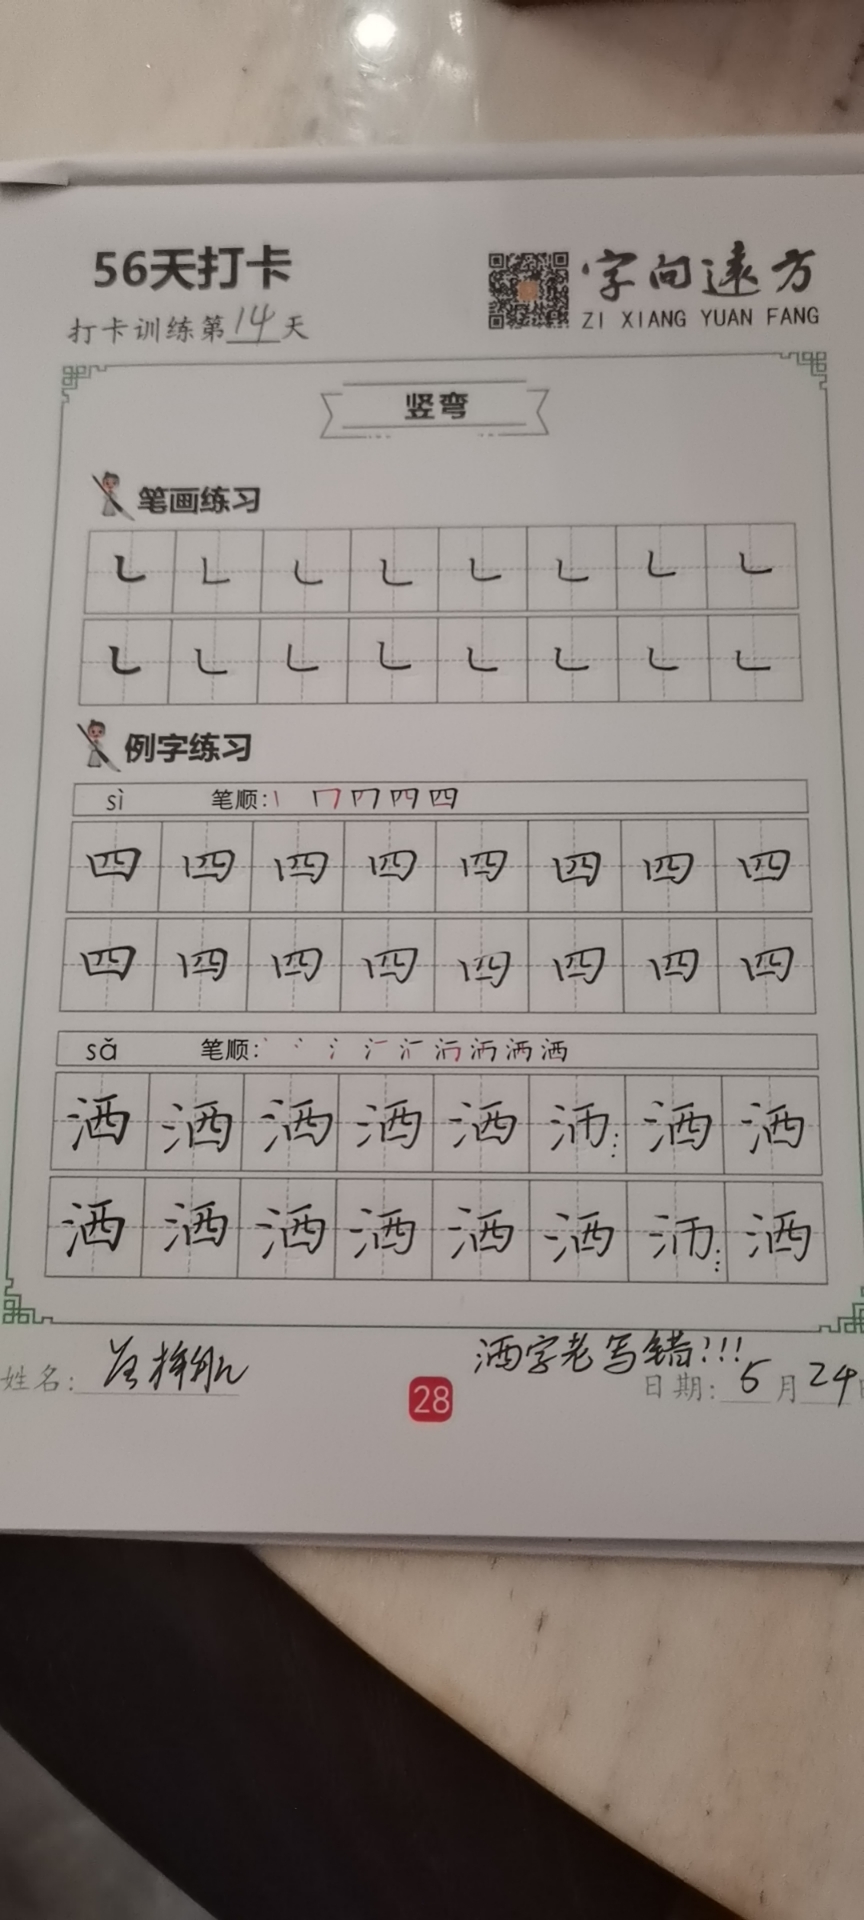 56天打卡
字向远方
打卡训练第14天
ZI XIANG YUAN FANG
竖弯
笔画练习
㇄ ㇄ ㇄ ㇄ ㇄ ㇄ ㇄ ㇄
㇄ ㇄ ㇄ ㇄ ㇄ ㇄ ㇄ ㇄
例字练习
sì 笔顺: 四
四 四 四 四 四 四 四 四
四 四 四 四 四 四 四 四
sǎ 笔顺: 洒
洒 洒 洒 洒 洒 洒 洒
洒 洒 洒 洒 洒 洒 洒
洒字老写错!!!
姓名:
28
日期: 5月24日